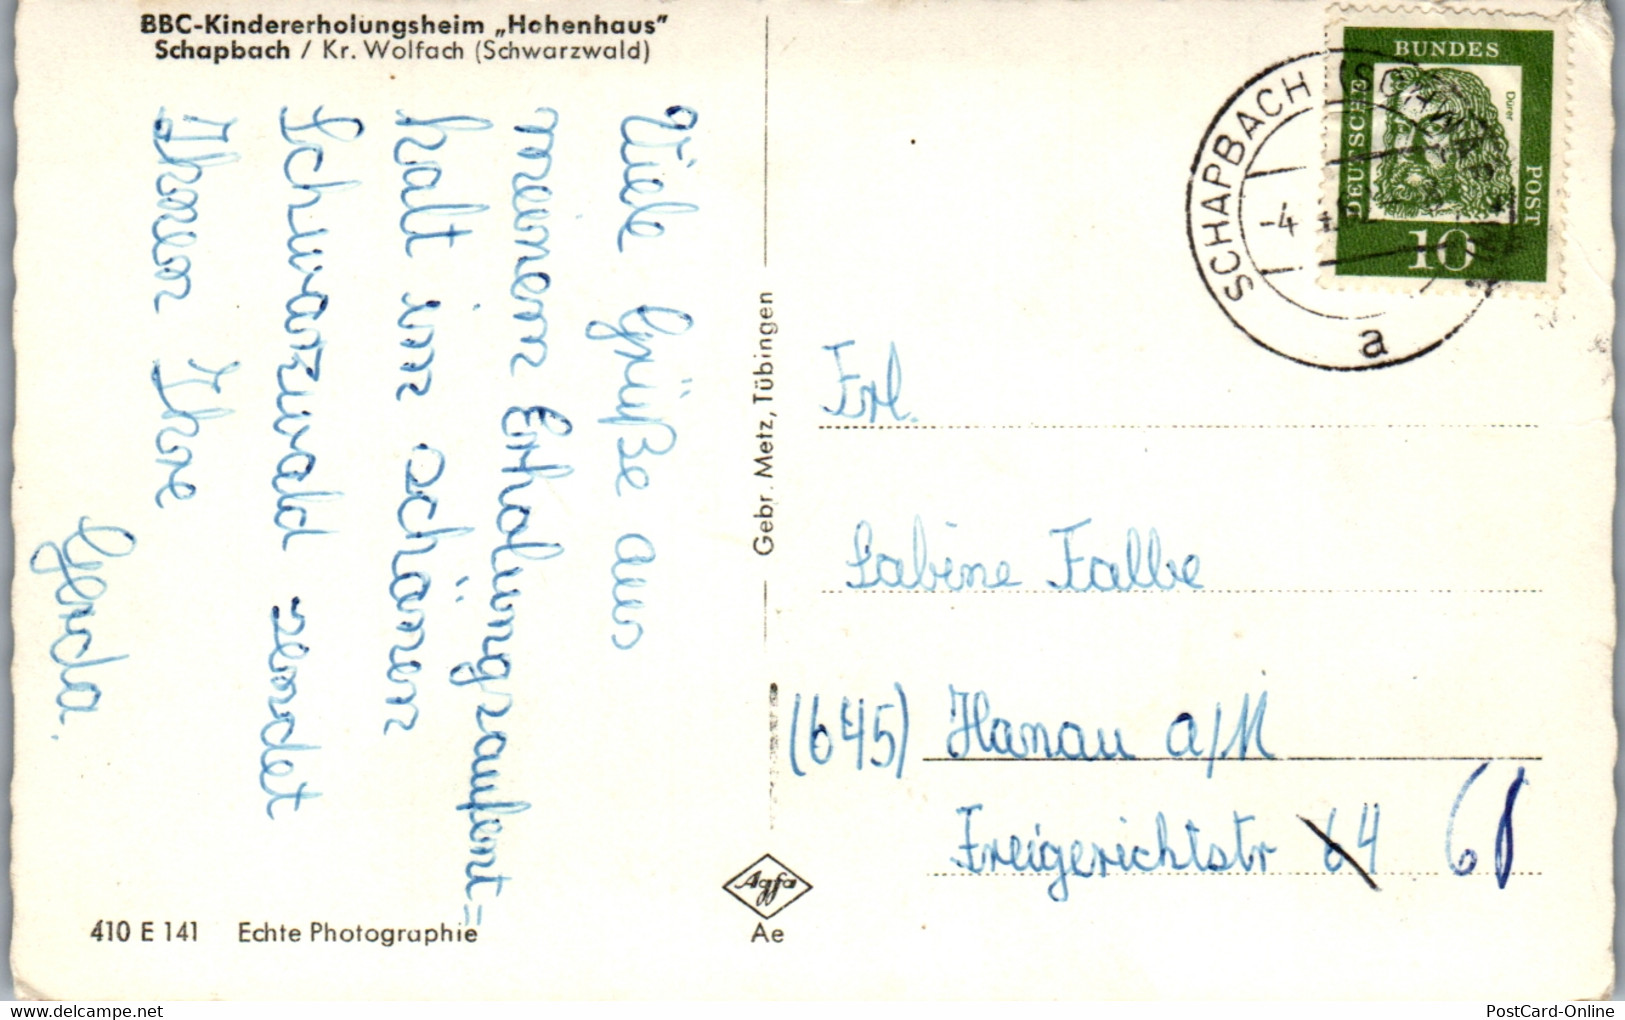 BBC-Kindererholungsheim „Hohenhaus"
Schapbach / Kr. Wolfach (Schwarzwald)
Viele Grüße aus
meinem Erholungsaufent=
halt im schönen
Schwarzwald sendet
Ihnen Ihre
Gerda.
Gebr. Metz, Tübingen
SCHAPBACH (SCHWARZW
-4
a
DEUTSCHE
BUNDES
POST
Dürer
10
Frl.
Sabine Falbe
(645) Hanau a/M
Freigerichtstr 64 68
Agfa
Ae
410 E 141 Echte Photographie
PostCard-Online